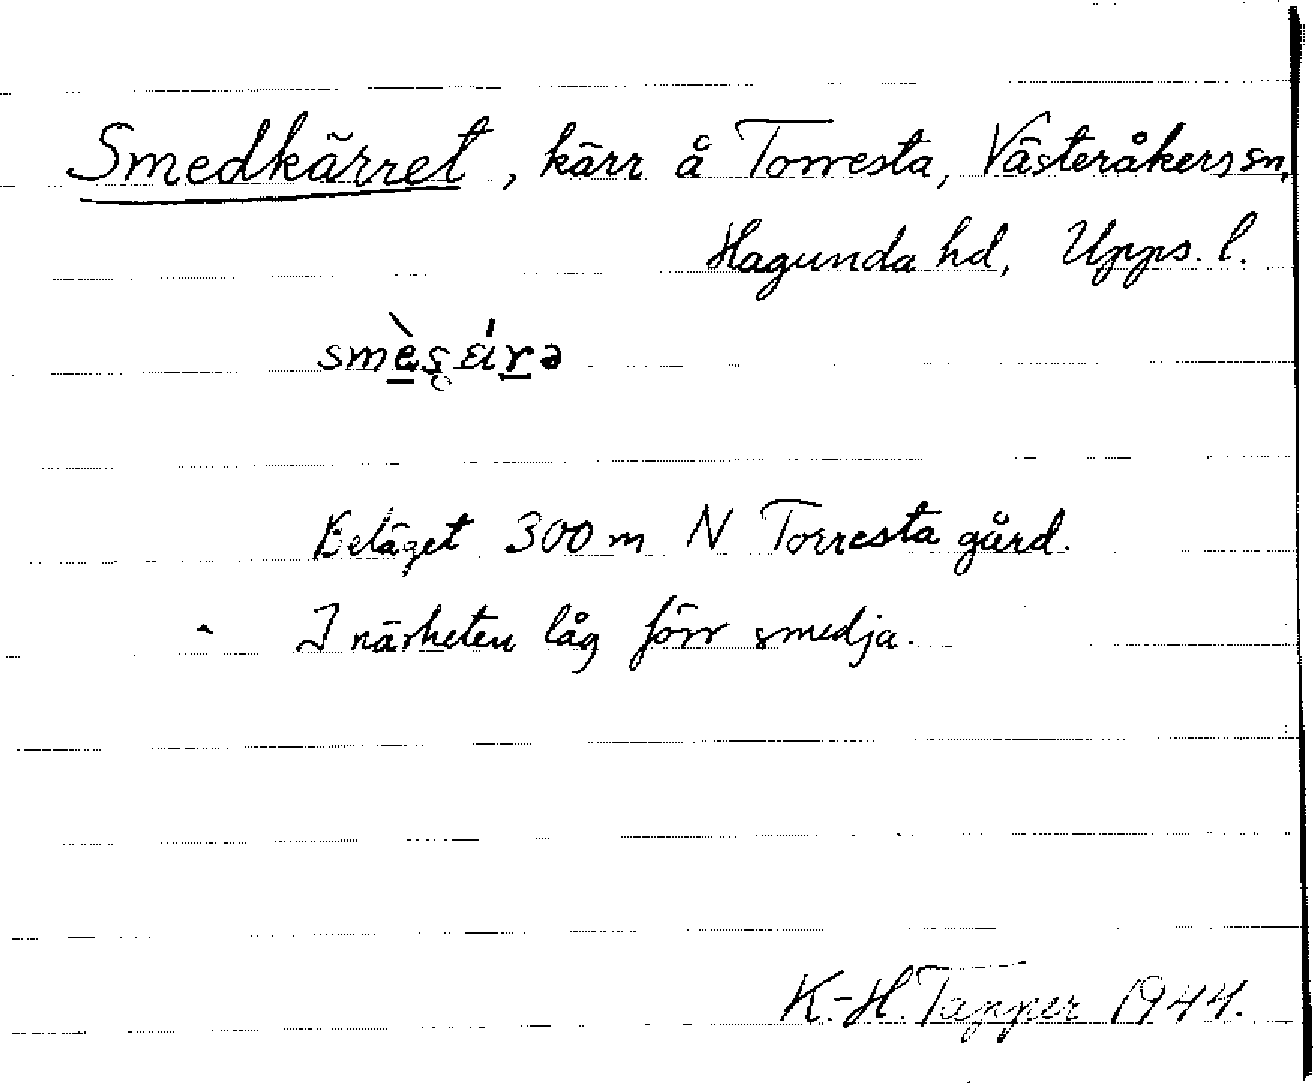 Smedkärret, kärr å Torresta, Västeråkers sn,
Hagunda hd, Upps. l.
Beläget 300 m N Torresta gård.
I närheten låg förr smedja.
K.-H. Tapper 1944.